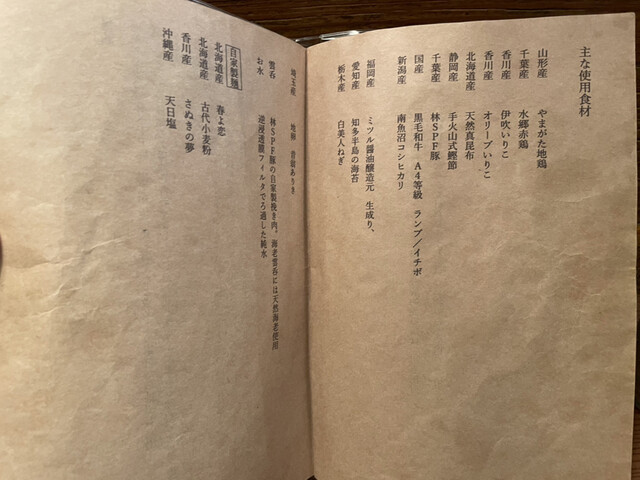 主な使用食材
山形産 やまがた地鶏
千葉産 水郷赤鶏
香川産 伊吹いりこ
香川産 オリーブいりこ
北海道産 天然真昆布
静岡産 手火山式鰹節
千葉産 林SPF豚
国産 黒毛和牛 A4等級 ランプ/イチボ
新潟産 南魚沼コシヒカリ
福岡産 ミツル醤油醸造元 生成り、
愛知産 知多半島の海苔
栃木産 白美人ねぎ
埼玉産 地卵
雲呑 林SPF豚の自家製挽き肉。海老雲呑には天然海老使用
お水 逆浸透膜フィルタでろ過した純水
自家製麺
北海道産 春よ恋
北海道産 古代小麦粉
香川産 さぬきの夢
沖縄産 天日塩